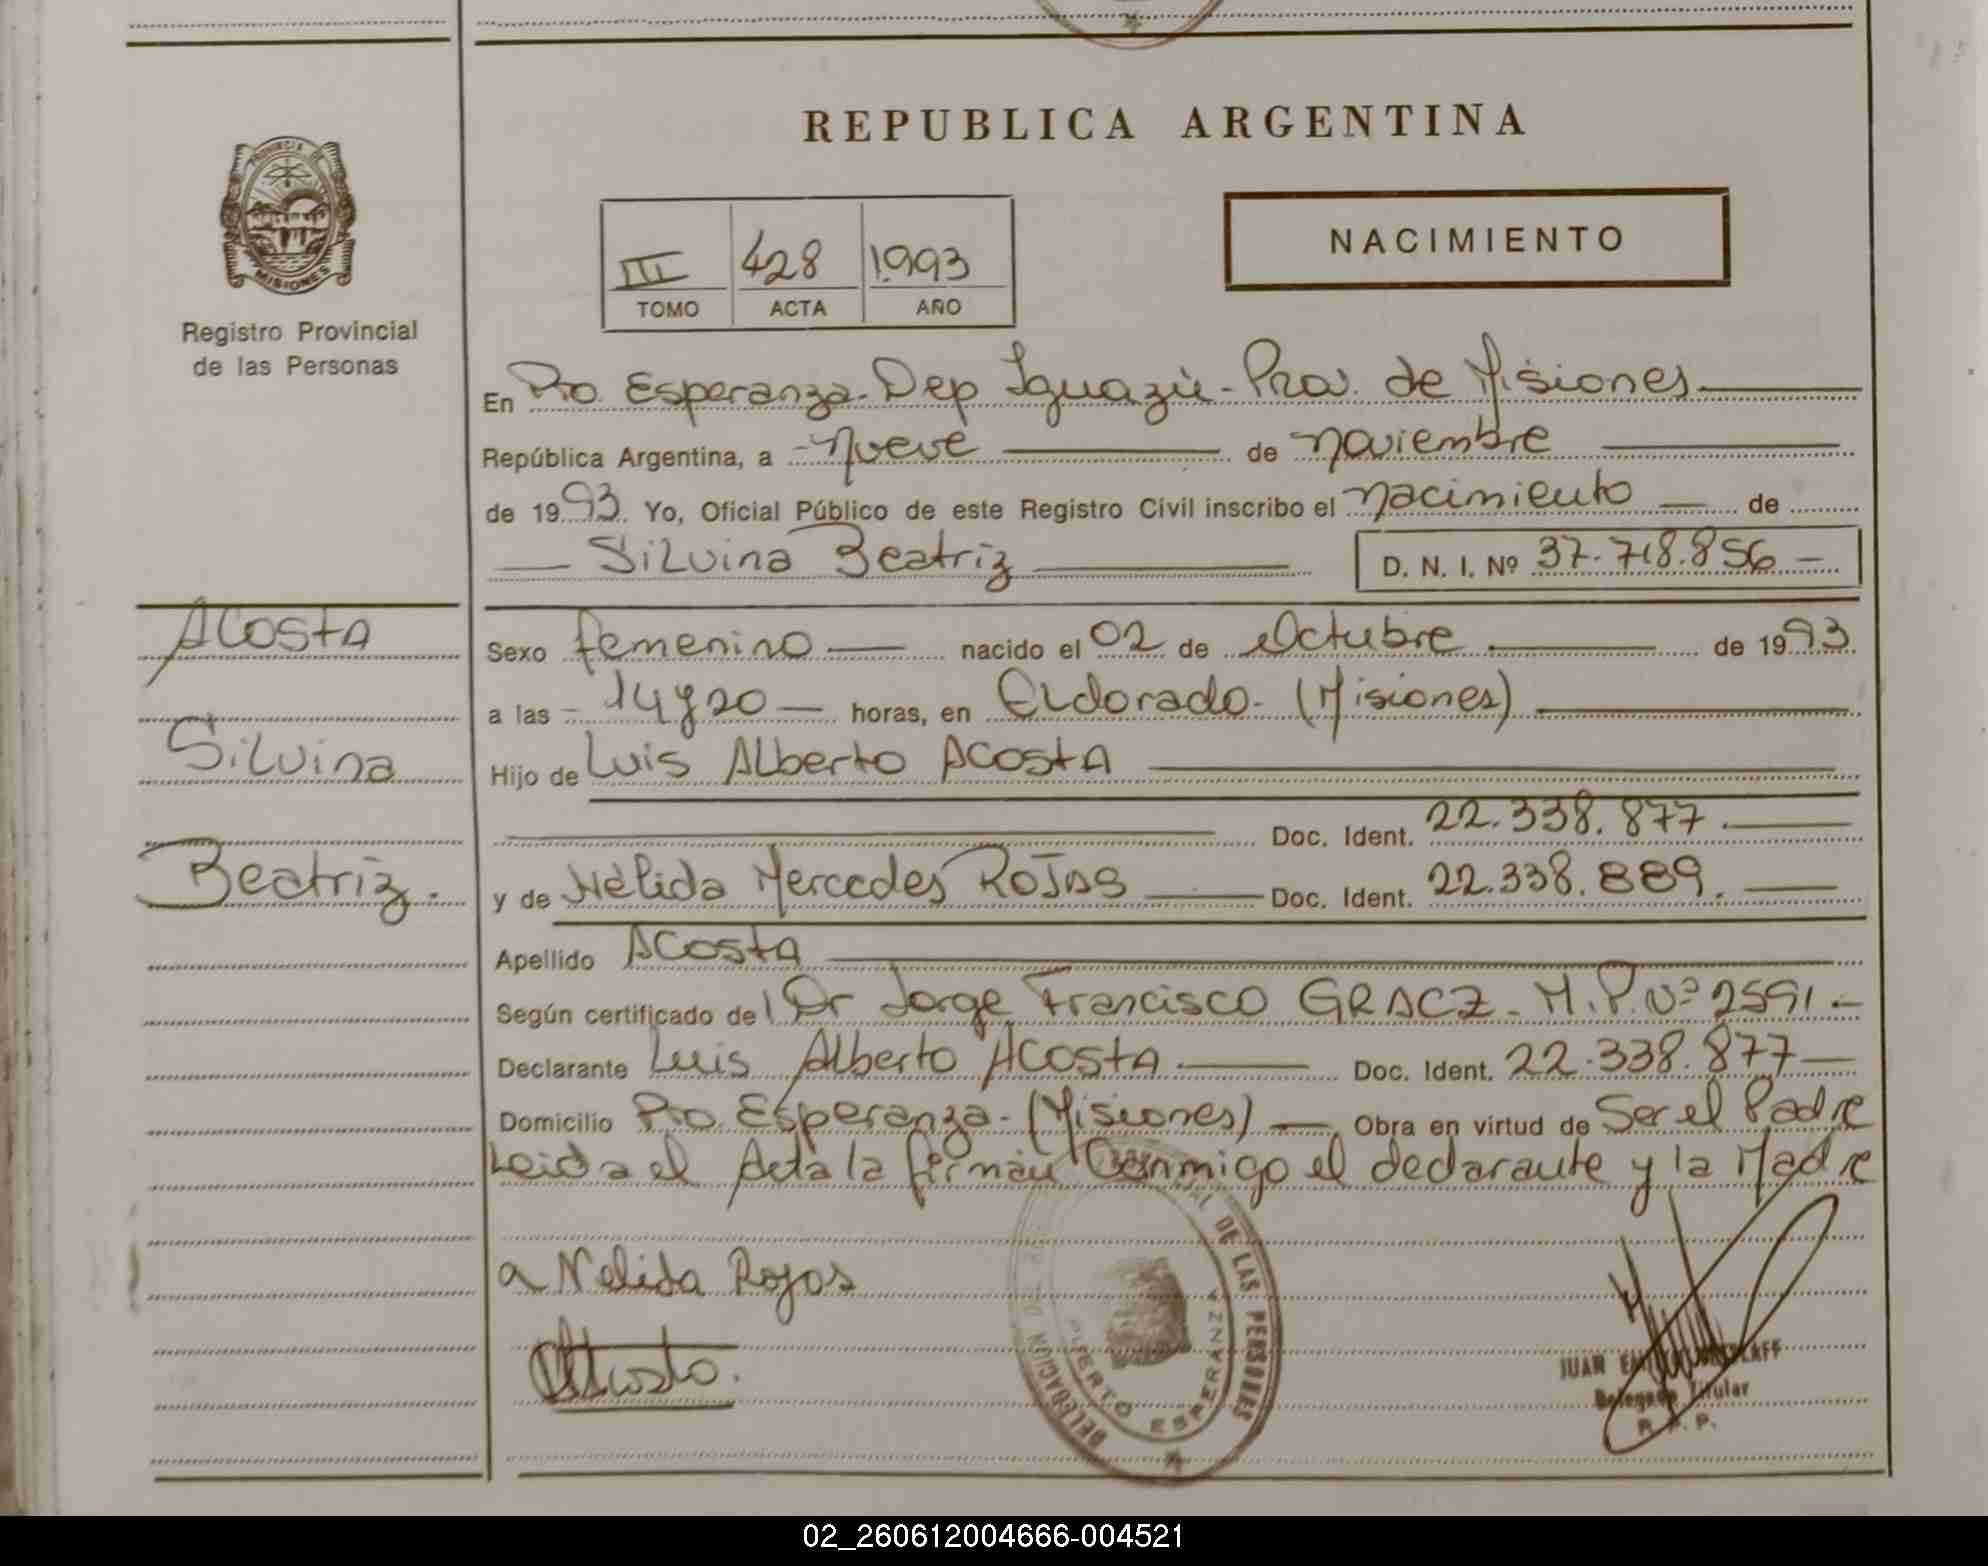 REPUBLICA ARGENTINA
PROVINCIA DE
MISIONES
Registro Provincial
de las Personas
NACIMIENTO
III 428 1993
TOMO ACTA AÑO
En Pto. Esperanza - Dep Iguazú - Prov. de Misiones
República Argentina, a - nueve de noviembre
de 1993. Yo, Oficial Público de este Registro Civil inscribo el nacimiento — de
— Silvina Beatriz — D. N. I. Nº 37.718.856 —
Acosta
Silvina
Beatriz.
Sexo femenino — nacido el 02 de Octubre — de 1993
a las - 14 y 20 — horas, en Eldorado - (Misiones)
Hijo de Luis Alberto Acosta
Doc. Ident. 22.338.877.
y de Nélida Mercedes Rojas — Doc. Ident. 22.338.889.
Apellido Acosta
Según certificado de Dr Jorge Francisco GRACZ - M.P. Nº 2591 -
Declarante Luis Alberto Acosta — Doc. Ident. 22.338.877 —
Domicilio Pto Esperanza - (Misiones) — Obra en virtud de Ser el Padre
Leida el Acta la firman Conmigo el declarante y la Madre
a Nelida Rojas
Acosto.
DELEGACION DE LAS PERSONAS
PUERTO ESPERANZA
JUAN
Delegado Titular
R. P. P.
02_260612004666-004521